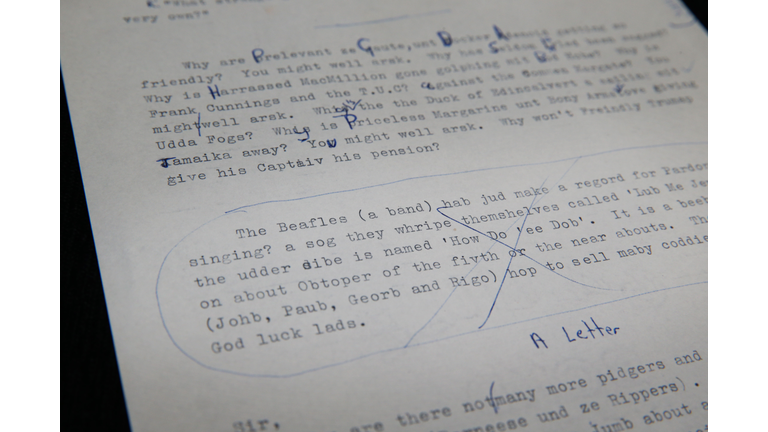 very own?"
Why are Prelevant ze Gaute, unt Docker Adenoid getting so
friendly? You might well arsk. Why has Seldom Loyd been
Why is Harrassed MacMillion gone golphing mit Bod Hobe? Why is
Frank Cunnings and the T.U.C? against the Common Margate? You
might/well arsk. Why the the Duck of Edincalvert a sailin mit
Udda Fogs? Why is Priceless Margarine unt Bony Arms Ove giving
Jamaika away? You might well arsk. Why won't Freindly Trumap
give his Captaiv his pension?
The Beafles (a band) hab jud make a regord for Pardor
singing? a sog they whripe themshelves called 'Lub Me Je
the udder dibe is named 'How Do 'ee Dob'. It is a beeb
on about Obtoper of the fivth or the near abouts. Th
(Johb, Paub, Georb and Rigo) hop to sell maby coddie
God luck lads.
A Letter
Sir,
are there not/many more pidgers and
neese und ze Rippers).
Jumb about a